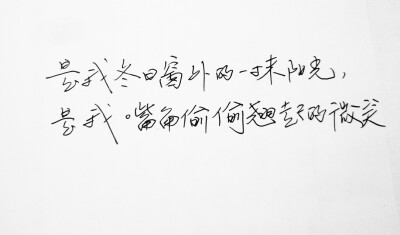 是我冬日窗外的一束阳光，
是我嘴角偷偷翘起的微笑